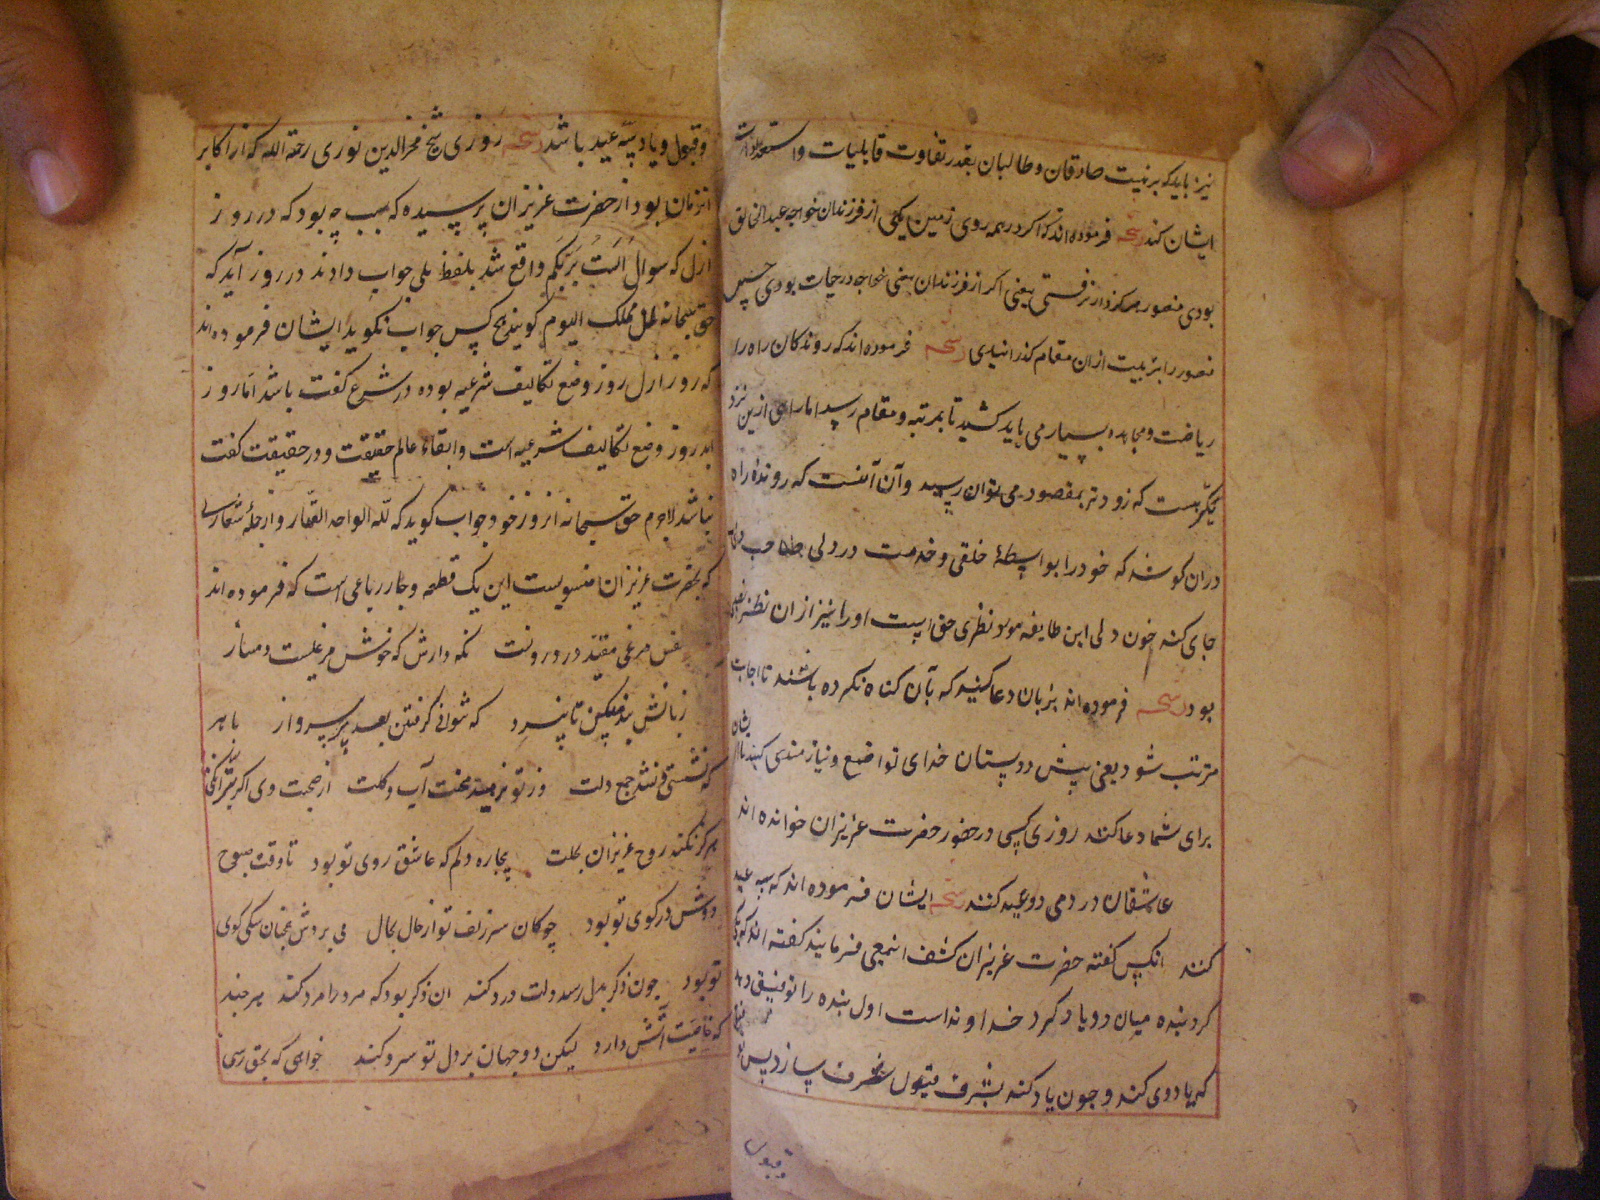 نیز باید که تربیت صادقان و طالبان بقدر تفاوت قابلیات و استعدادات
ایشان کند رشحه فرموده اند که اگر در همه روی زمین یکی از فرزندان خواجه عبدالخالق
بودی منصور هرگز دار نرفتی یعنی اگر از فرزندان معنی خواجه در حیات بودی حسین
منصور را بتربیت ازان مقام گذرانیدی رشحه فرموده اند که روندگان راه را
ریاضت و مجاهده بسیار می باید کشید تا بمرتبه و مقام رسید اما راهی ازین نزد
یکتر هست که زودتر بمقصود می توان رسید و آن آنست که رونده راه
دران کوشد که خود را بواسطهٔ خلقی و خدمت در دلی صاحب دولت
جای کند چون دلی این طایفه مورد نظری حق است او را نیز ازان نظر نصیبی
بود رشحه فرموده اند بزبان دعا کنید که بآن گناه نکرده باشند تا اجابت
مترتب شود یعنی پیش دوستان خدای تواضع و نیازمندی کنید تا ایشان
برای شما دعا کنند روزی کسی در حضور حضرت عزیزان خوانده اند
عاشقان در دمی دو عید کنند رشحه ایشان فرموده اند که سه عید
کنند انکس گفته حضرت عزیزان کشف انمعنی فرمایند گفته اند که یک
کرد بنده میان دو یاد کرد خداونداست اول بنده را توفیق دهد
که یاد وی کند و چون یاد کند بشرف قبول مشرف سازد پس توفیق
و قبول
و قبول و یاد سه عید باشد رشحه روزی شیخ فخرالدین نوری رحمه الله که از اکابر
انزمان بود از حضرت عزیزان پرسیده که سبب چه بود که در روز
ازل که سوال الست بربکم واقع شد بلفظ بلی جواب دادند در روز آید که
حق سبحانه لمن الملک الیوم گویند هیچ کس جواب نگوید ایشان فرموده اند
که روز ازل روز وضع تکالیف شرعیه بوده در شرع گفت باشد اما روز
ابد روز وضع تکالیف شرعیه است و ابقاء عالم حقیقت و در حقیقت گفت
نباشد لاجرم حق سبحانه انروز خود جواب گوید که لله الواحد القهار و ازجملهٔ شعارسی
که بحضرت عزیزان منسوبست این یک قطعه و چار رباعی است که فرموده اند
نفس مرغی مقید در درونست نگه دارش که خوش مرغیست دمساز
ز پایش بند مگسل تا نپرد که نتوانی گرفتن بعد پرواز با هر
که نشستی و نشد جمع دلت وز تو نرمید زحمت آب و گلت از صحبت وی اگر تبرا نکنی
هرگز نکند روح عزیزان بحلت بیچاره دلم که عاشق روی تو بود تا وقت صبوح
دوش در کوی تو بود چوگان سر زلف تو از حال بحال می بردش همچنان یکی گوی
تو بود چون ذکر بدل رسد دلت درد کند ان ذکر بود که مرد را مرد کند هر چند
که خاصیت آتش دارد لیکن دو جهان بر دل تو سرد کند خواهی که بحق رسی